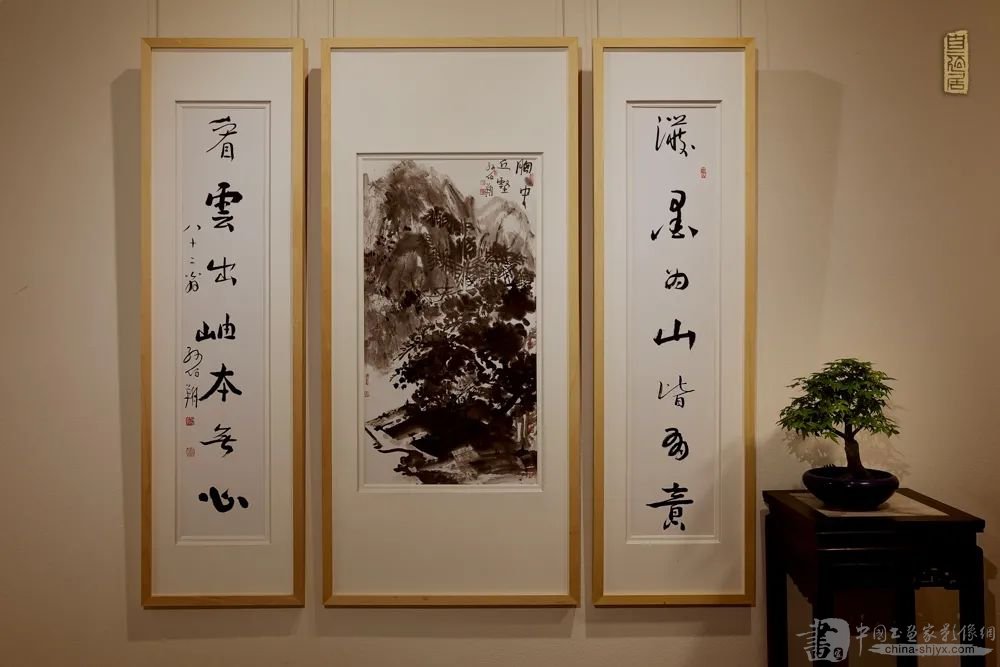 潑墨为山皆有意
胸中
丘壑
孙伯翔
看雲出岫本無心
八十二翁 孙伯翔
書
中國書画家影像網
china-shjyx.com